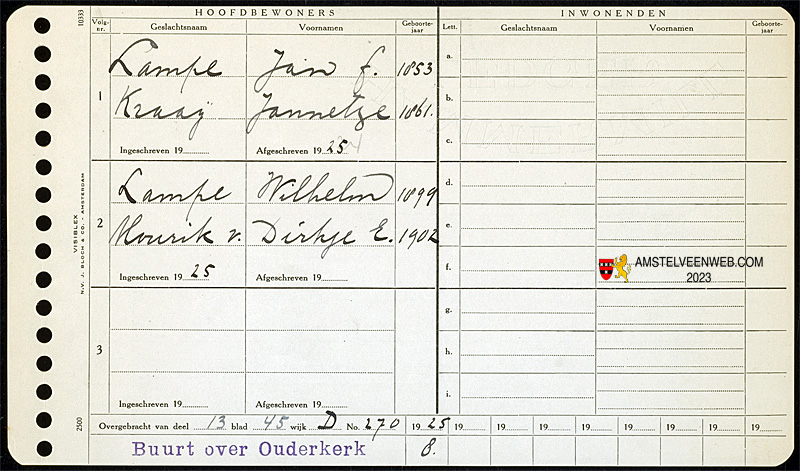 HOOFDBEWONERS INWONENDEN
Volg-nr. Geslachtsnaam Voornamen Geboorte-jaar Lett. Geslachtsnaam Voornamen Geboorte-jaar
10333
1
Lampe Jan f. 1853
Kraaÿ Jannetze 1861.
Ingeschreven 19 Afgeschreven 19 25
a.
b.
c.
2
Lampe Wilhelm 1899
Mourik v. Dirkje E. 1902
Ingeschreven 19 25 Afgeschreven 19
d.
e.
f.
AMSTELVEENWEB.COM
2023
3
Ingeschreven 19 Afgeschreven 19
g.
h.
i.
VISIBLEX
N.V. J. BLOCH & CO. - AMSTERDAM
2500
Overgebracht van deel 13 blad 45 wijk D No. 270 19 25 19 19 19 19 19 19 19 19
Buurt over Ouderkerk 8.